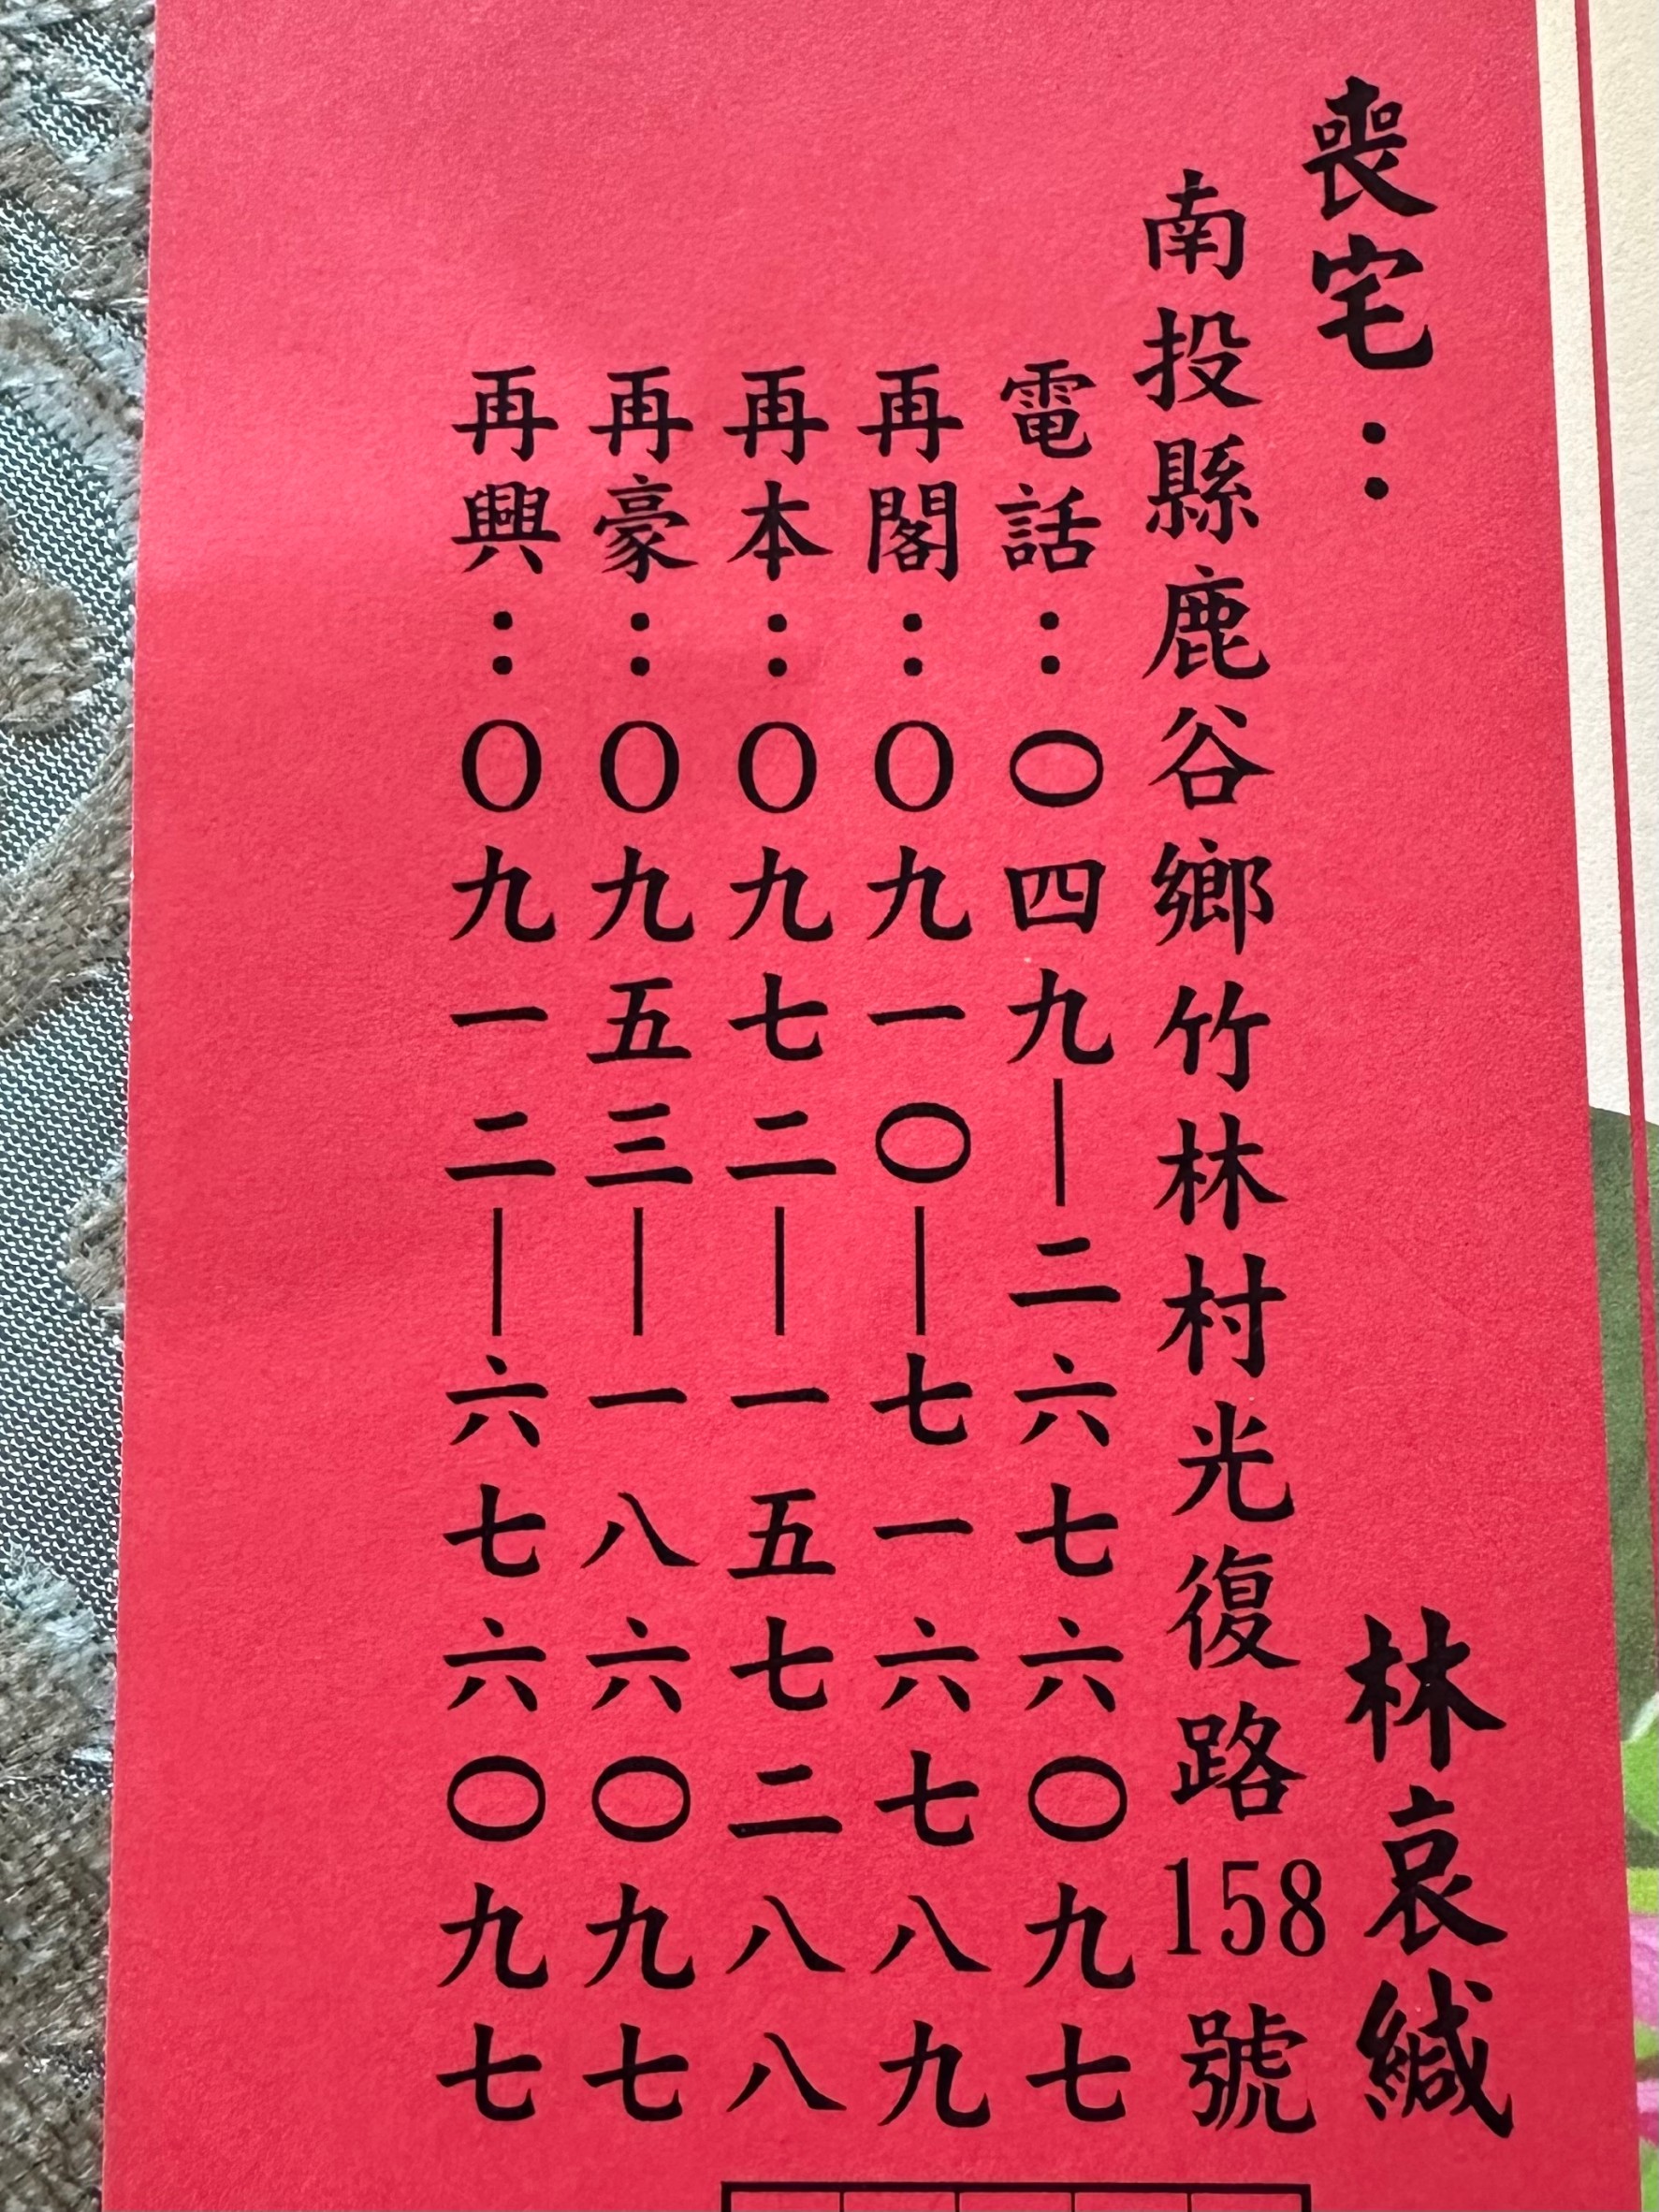 喪宅：
林哀緘
南投縣鹿谷鄉竹林村光復路158號
電話：〇四九—二六七六〇九七
再閣：〇九一〇—七一六七八九
再本：〇九七二—一五七二八八
再豪：〇九五三—一八六〇九七
再興：〇九一二—六七六〇九七